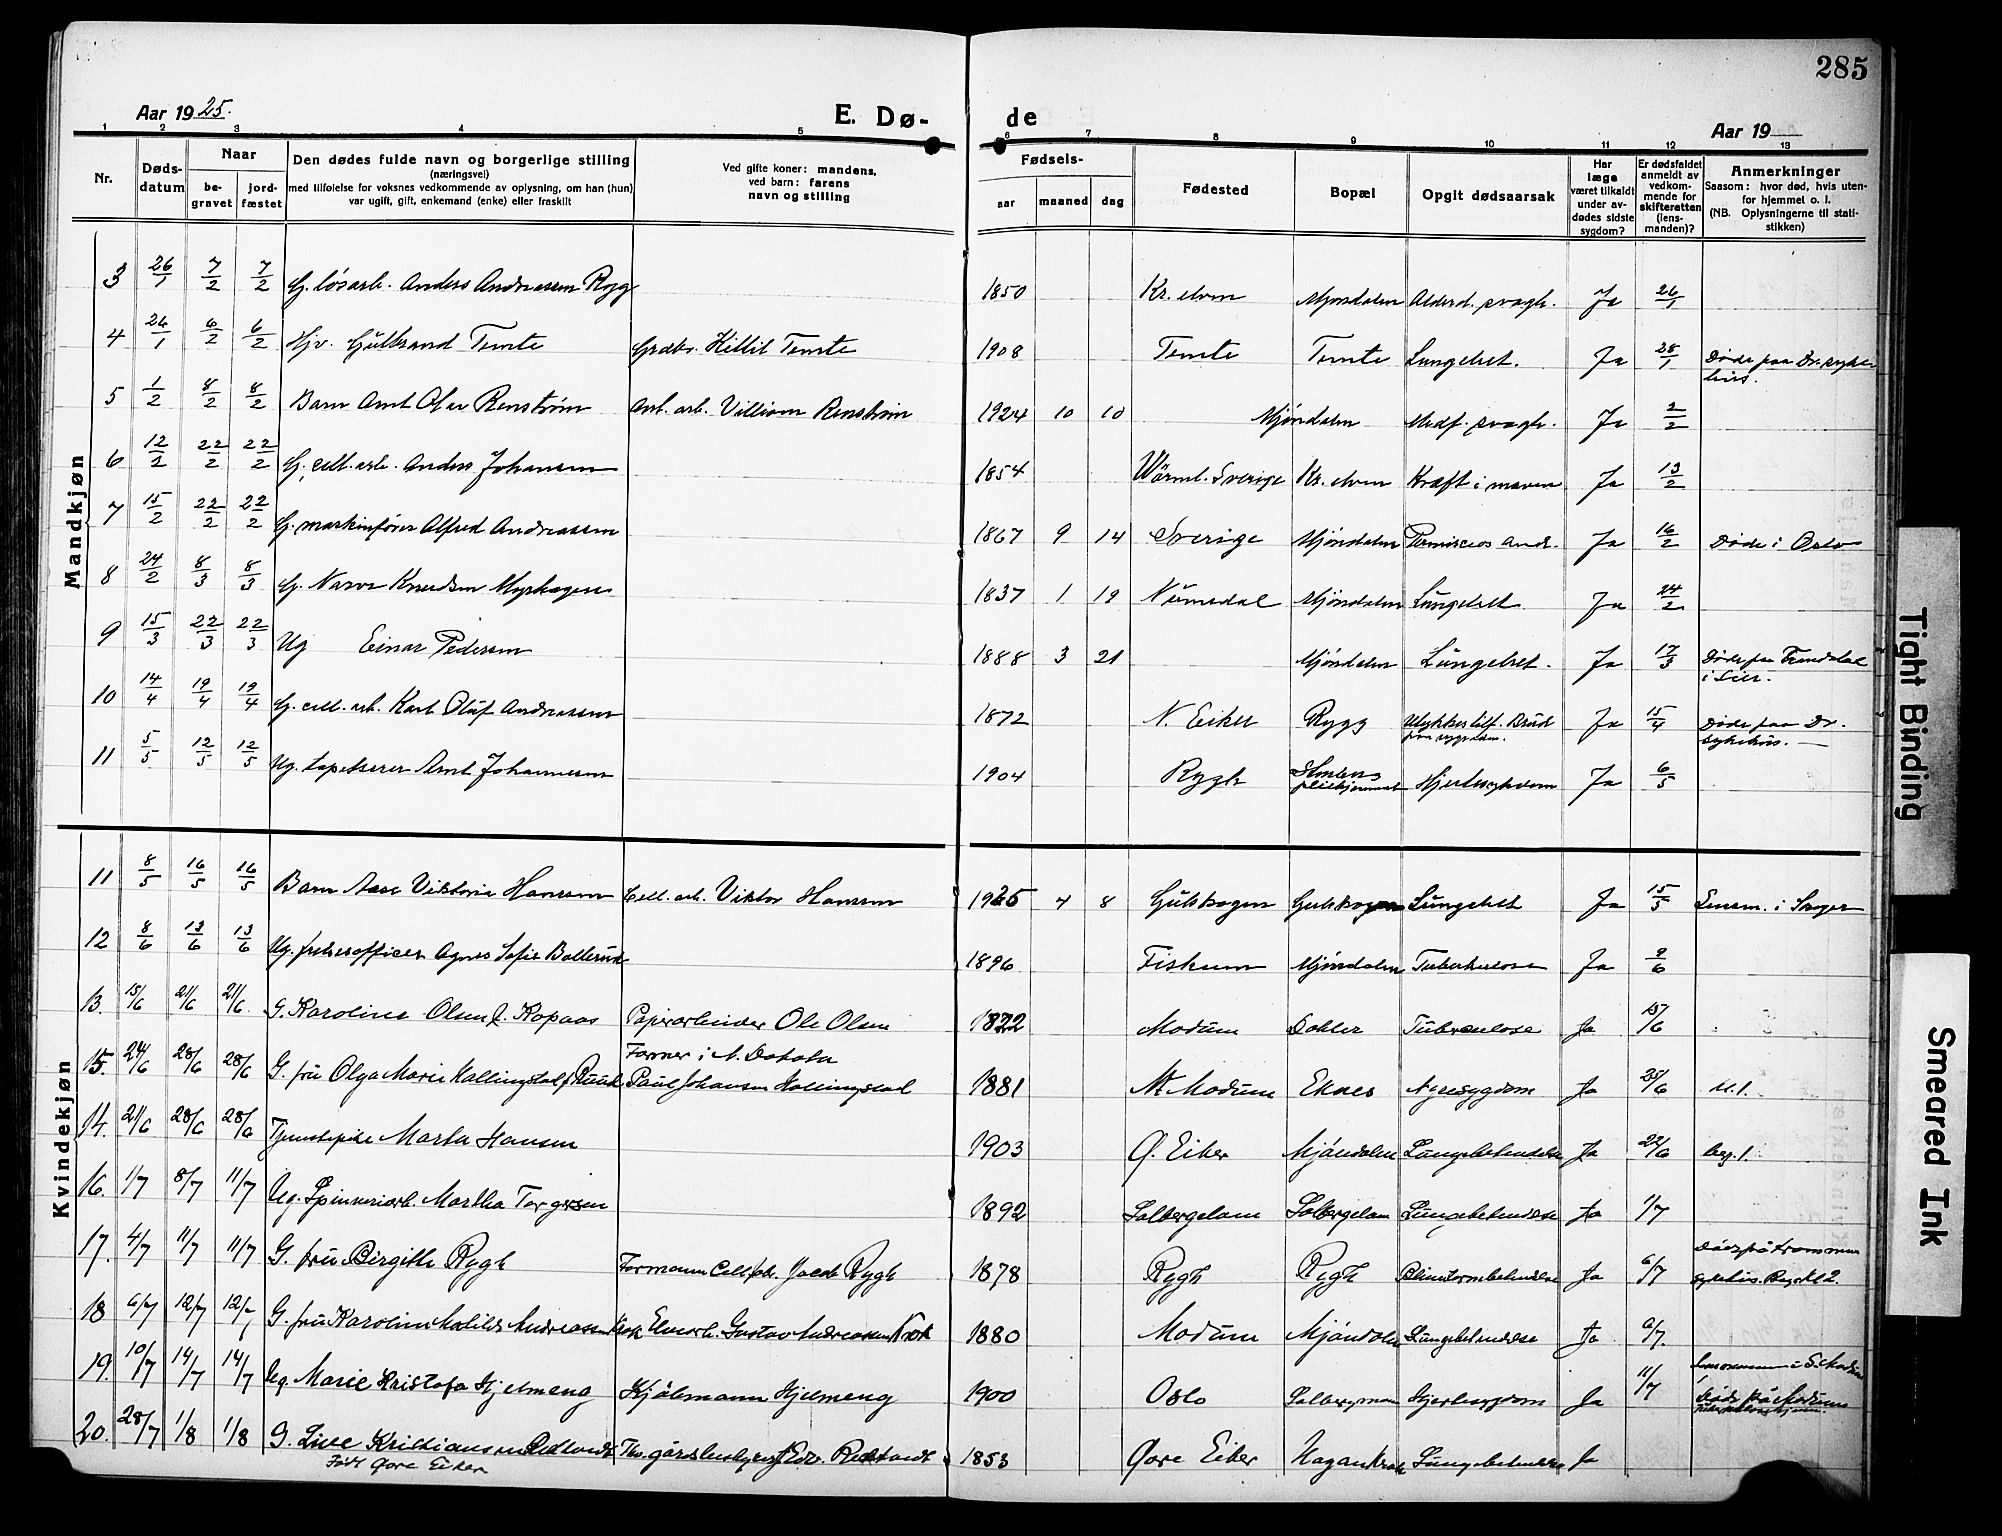 285
Aar 1925.
E. Dø- de
Aar 19
1 2 3 4 5 6 7 8 9 10 11 12 13
Nr.
Døds-
datum
Naar
be-
gravet
jord-
fæstet
Den dødes fulde navn og borgerlige stilling
(næringsvei)
med tilføielse for voksnes vedkommende av oplysning, om han (hun)
var ugift, gift, enkemand (enke) eller fraskilt
Ved gifte koner: mandens,
ved barn: farens
navn og stilling
Fødsels-
aar maaned dag
Fødested
Bopæl
Opgit dødsaarsak
Har
læge
været tilkaldt
under av-
dødes sidste
sygdom?
Er dødsfaldet
anmeldt av
vedkom-
mende for
skifteretten
(lens-
manden)?
Anmerkninger
Saasom: hvor død, hvis uten-
for hjemmet o. l.
(NB. Oplysningerne til stati-
stikken)
Mandkjøn
3 26/1 7/2 7/2 G. løsarb. Anders Andreassen Rygg 1850 Kr. elven Mjøndalen Alderd. svagh. Ja 26/1
4 26/1 6/2 6/2 Gulbrand Temte Kittil Temte 1908 Temte Temte Lungebet. Ja 28/1 Døde paa Dr. syke-
hus.
5 1/2 8/2 8/2 Barn Arnt Olav Renstrøm arb. Villiam Renstrøm 1924 10 10 Mjøndalen Medf. svagh. Ja 2/2
6 12/2 22/2 22/2 G. cell. arb. Anders Johansen 1854 Värml. Sverige Kr. elven Kræft i maven Ja 13/2
7 15/2 22/2 22/2 G. maskinfører Alfred Andreassen 1867 9 14 Sverige Mjøndalen Perniciøs Ja 16/2 Døde i Oslo
8 24/2 8/3 8/3 G. Narve Knudsen Myrhagen 1837 1 19 Numedal Mjøndalen Lungebet. Ja 24/2
9 15/3 22/3 22/3 Ug Einar Pedersen 1888 3 21 Mjøndalen Lungebet. Ja 17/3 Døde paa
i Lier.
10 14/4 19/4 19/4 G. cell. arb. Karl Oluf Andreassen 1872 N. Eiker Rygg Ulykkestilf. Brud
paa rygraden. Ja 15/4 Døde paa Dr.
sykehus.
11 5/5 12/5 12/5 Ug. tapetserer Arnt Johannesen 1904 Rygh
pleiehjemmet Hjertesykdom Ja 6/5
Kvindekjøn
11 8/5 16/5 16/5 Barn Aase Viktoria Hansen Cell. arb. Viktor Hansen 1925 4 8 Gulskogen Gulskogen Lungebet. Ja 15/5 Lensm. i Skoger
12 8/6 13/6 13/6 Ug. frelsesofficer Agnes Sofie Bollerud 1896 Fiskum Mjøndalen Tuberkulose Ja 9/6
13. 15/6 21/6 21/6. G. Karoline Olsen f. Kopaas Papirarbeider Ole Olsen 1822 Modum Dokker Tuberculose Ja 15/6
15. 24/6 28/6 28/6 G. fru Olga Marie Hallingstad f. Ruud Farmer i N. Dakota
Paul Johansen Hallingstad 1881 Modum Eknes Nyresygdom Ja 25/6
14. 21/6 28/6 28/6 Tjenestepike Marta Hansen 1903 Ø. Eiker Mjöndalen Lungebetendelse Ja 22/6
16. 1/7 8/7 11/7 Ug. Spinneriarb. Martha Torgersen 1892 Solbergelven Solbergelven Lungebetendelse Ja 1/7
17. 4/7 11/7 11/7 G. fru Birgitte Rygh Formann Cell.fab. Jacob Rygh 1878 Rygh Rygh Blindtarmbetendelse Ja 6/7 Död på Drammen
sykehus.
18 6/7 12/7 12/7 G. fru Karoline Matilde Andreassen Krok Gustav Andreassen Krok 1880 Modum Mjöndalen Lungebetendelse Ja 9/7.
19. 10/7 14/7 14/7 Ug. Marie Kristofa Hjelmeng Kjölmann Hjelmeng 1900 Oslo Hjertesygdom Ja 11/7
20. 28/7 1/8 1/8 G. Lise Kristiansen Redtvedt
Født Øvre Eiker 1853 Øvre Eiker Lungebetendelse Ja
Tight Binding
Smeared Ink